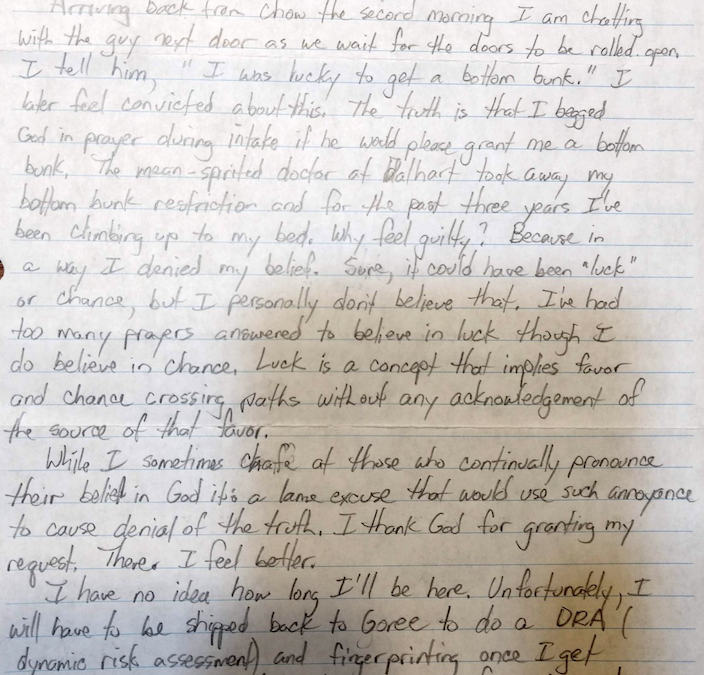 Arriving back from Chow the second morning I am chatting
with the guy next door as we wait for the doors to be rolled open.
I tell him, "I was lucky to get a bottom bunk." I
later feel convicted about this. The truth is that I begged
God in prayer during intake if he would please grant me a bottom
bunk. The mean-sprited doctor at Dalhart took away my
bottom bunk restriction and for the past three years I've
been climbing up to my bed. Why feel guilty? Because in
a way I denied my belief. Sure, it could have been "luck"
or chance, but I personally don't believe that. I've had
too many prayers answered to believe in luck though I
do believe in chance. Luck is a concept that implies favor
and chance crossing paths without any acknowledgement of
the source of that favor.
While I sometimes chafe at those who continually pronounce
their belief in God it's a lame excuse that would use such annoyance
to cause denial of the truth. I thank God for granting my
request. There. I feel better.
I have no idea how long I'll be here. Unfortunately, I
will have to be shipped back to Goree to do a DRA (
dynamic risk assessment) and fingerprinting once I get